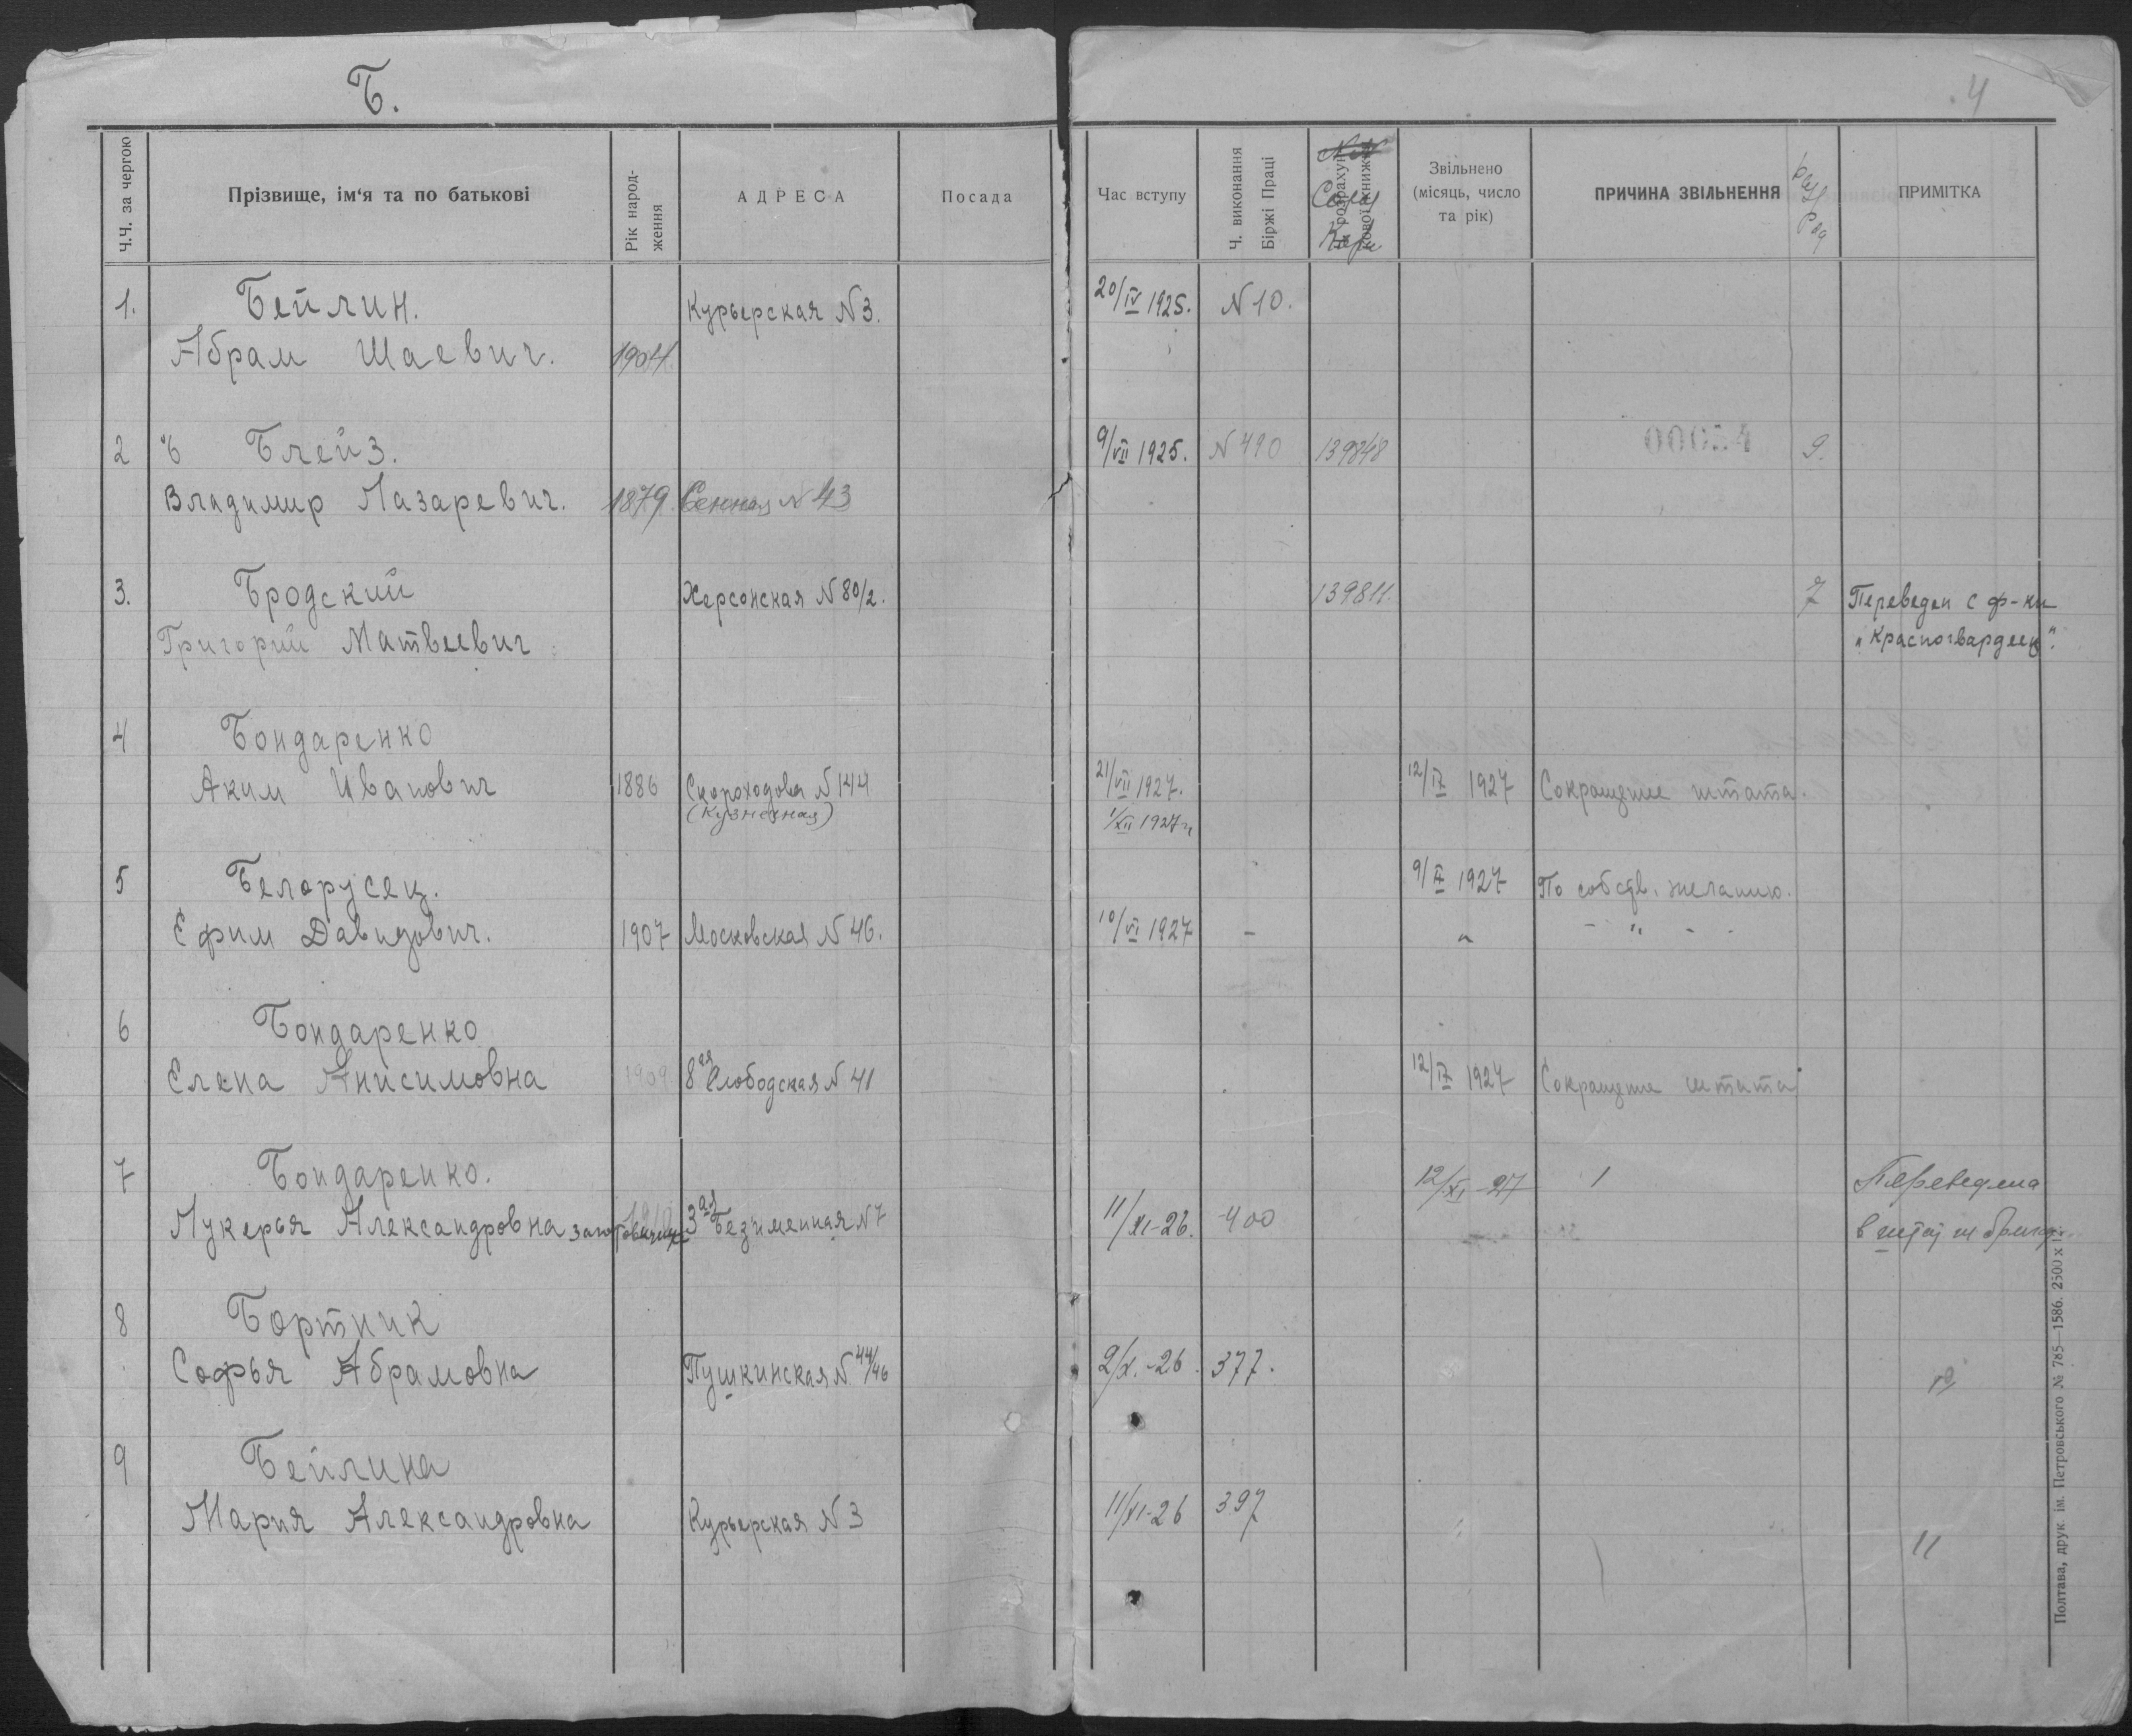 Б.
4
Ч.Ч. за чергою
Прізвище, ім‘я та по батькові
Рік народ-
ження
АДРЕСА
Посада
Час вступу
Ч. виконання
Біржі Праці
Звільнено
(місяць, число
та рік)
ПРИЧИНА ЗВІЛЬНЕННЯ
ПРИМІТКА
1. Бейлин. Курьерская N 3. 20/IV 1925. N 10.
Абрам Шаевич. 1904.
2 Блейз. 9/VII 1925. N 490 139848 00054 9.
Владимир Лазаревич. 1879. Сенная N 43
3. Бродский Херсонская N 80/2. 139811. 7 Переведен с ф-ки
Григорий Матвеевич „Красногвардеец".
4 Бондаренко
Аким Иванович 1886 Скороходова N 144 21/VII 1927. 12/IX 1927 Сокращение штата.
(Кузнечная) 1/XII 1927г
5 Белорусец. 9/X 1927 По собств. желанию.
Ефим Давидович. 1907 Московская N 46. 10/VI 1927 - " - " - -
6 Бондаренко
Елена Анисимовна 1909 8ая Слободская N 41 12/IX 1927 Сокращение штата
7 Бондаренко. 12/XI-27 1 Переведена
Лукерья Александровна 3ая Безименная N 7 11/XI-26. 400 в
8 Бортник
Софья Абрамовна Пушкинская N 44/46 2/X.-26. 377.
9 Бейлина
Мария Александровна Курьерская N 3 11/XI-26 397
11
Полтава, друк. ім. Петровського № 785—1586. 2500 х 1